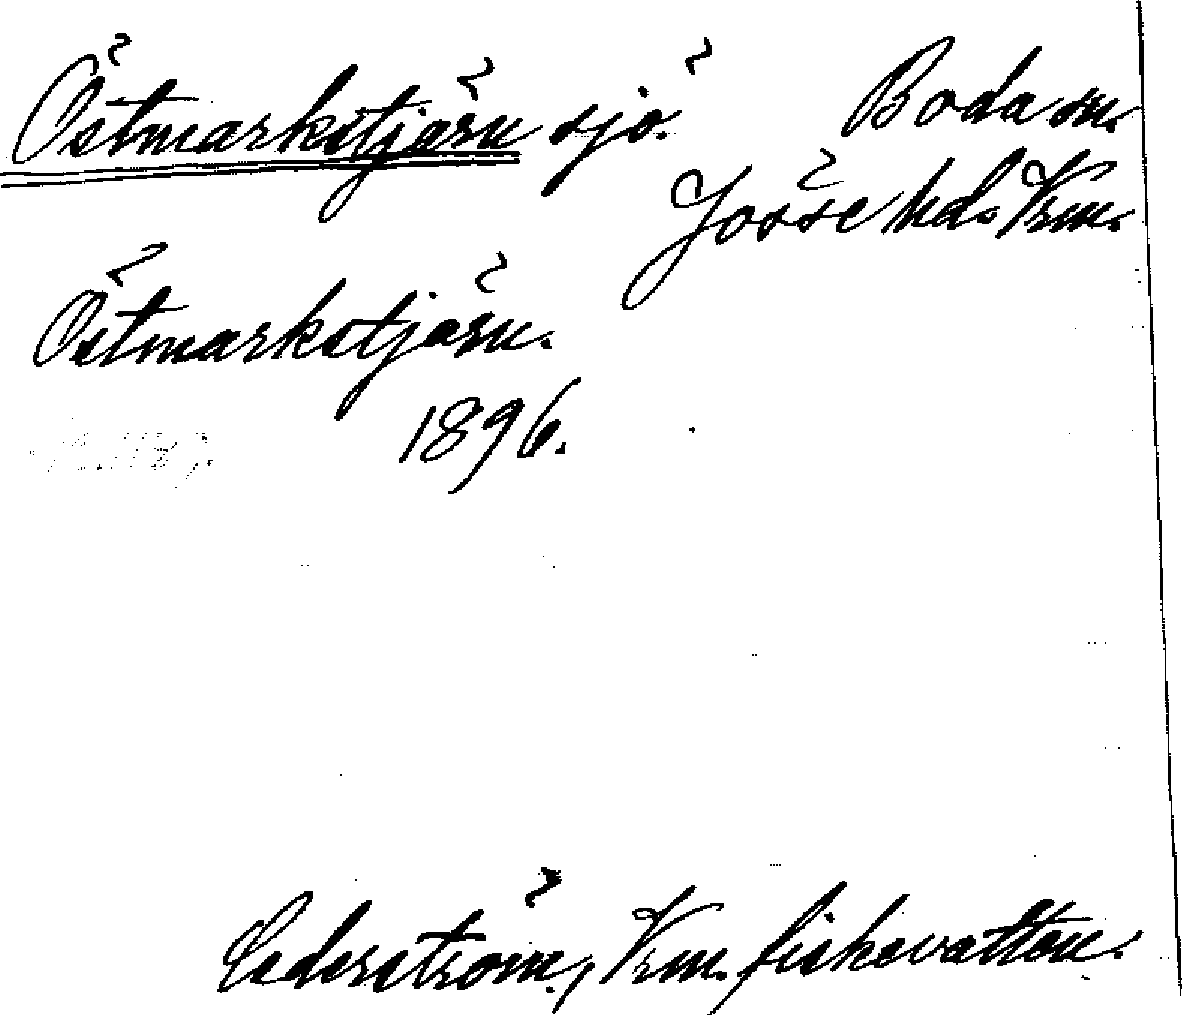 Östmarkstjärn sjö. Boda sn.
Jösse hd. Vrm.
Östmarkstjärn.
1896.
Cederström, Vrm. fiskevatten.